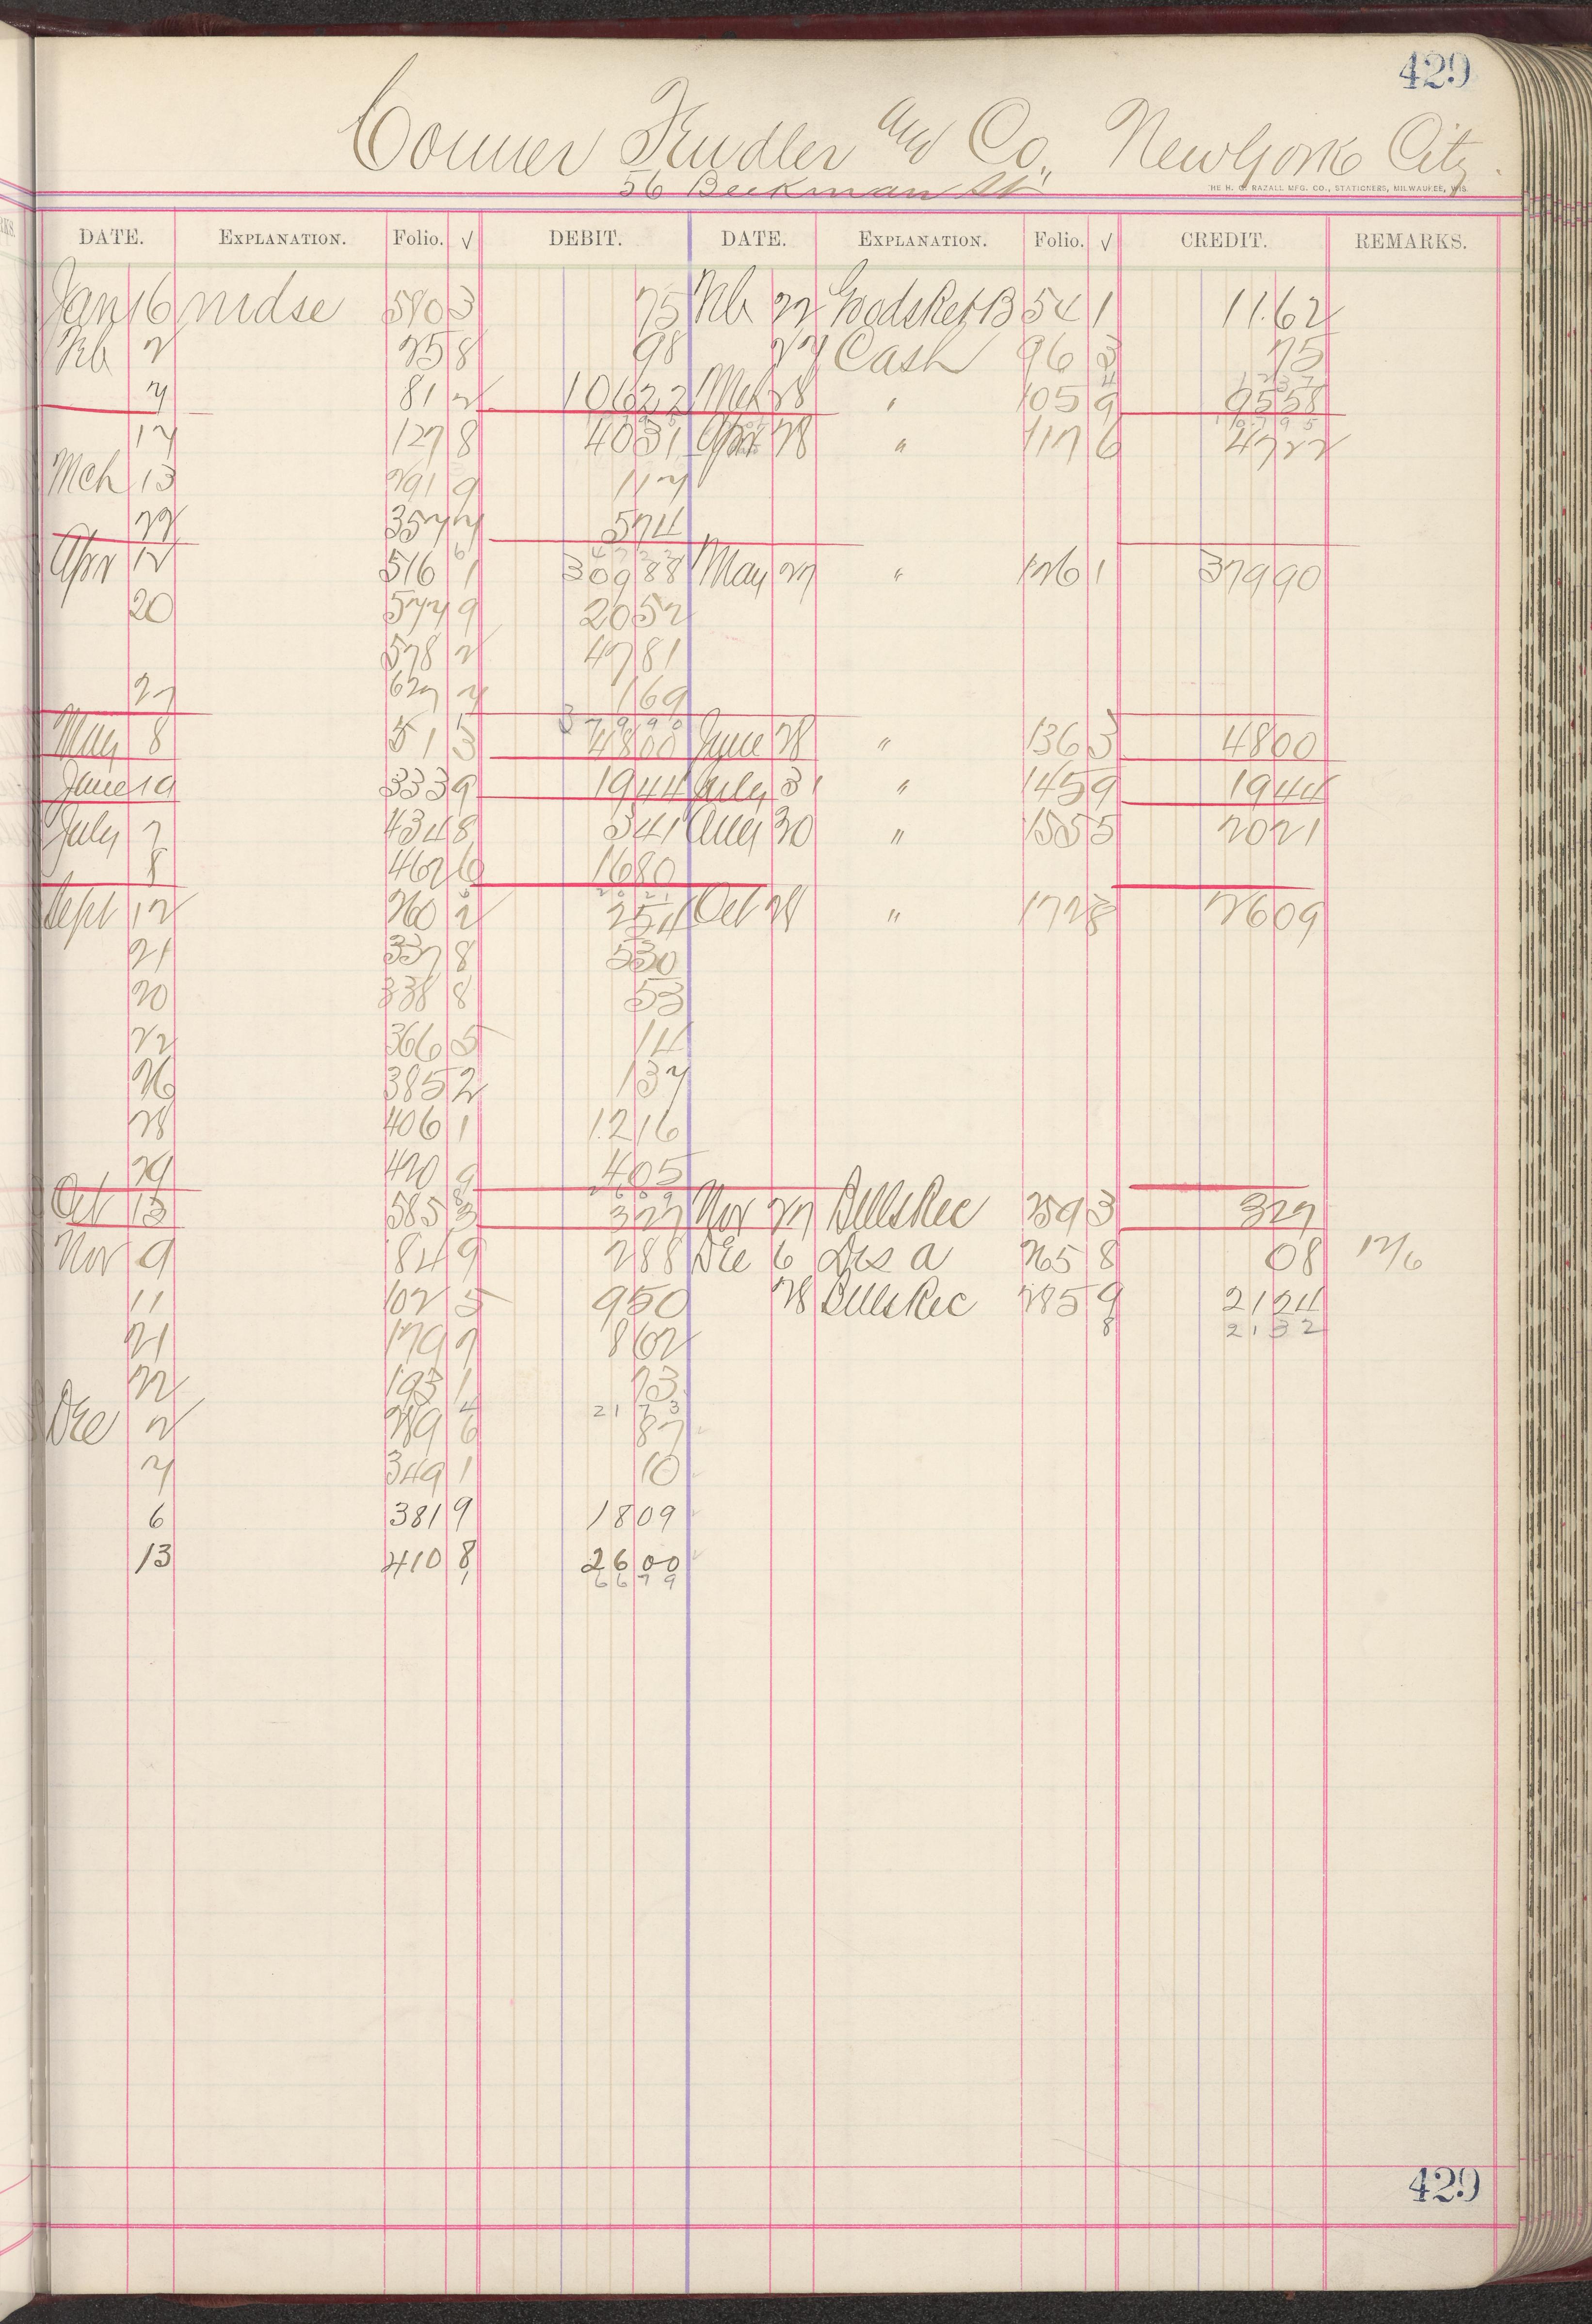 429
Conner Findler and Co., New York City.
56 Beekman St.
THE H. C. RAZALL MFG. CO., STATIONERS, MILWAUKEE, WIS.
DATE. EXPLANATION. Folio. √ DEBIT. DATE. EXPLANATION. Folio. √ CREDIT. REMARKS.
Jan 16 mdse 580 3 75 Feb 22 Goods Ret B 54 1 11.62
Feb 2 25 8 98 27 Cash 96 3 75
7 81 2 106 22 Mch 28 " 105 9 95 58
17 127 8 40 31 Apr 28 " 117 6 47 22
Mch 13 291 9 1 17
22 357 7 5 74
Apr 12 516 1 309 88 May 27 " 126 1 379 90
20 577 9 20 52
578 2 47 81
27 627 7 1 69
May 8 51 3 48 00 June 28 " 136 3 48 00
June 19 333 9 19 44 July 31 " 145 9 19 44
July 7 434 8 3 41 Aug 30 " 155 5 20 21
8 462 6 16 80
Sept 12 260 2 2 54 Oct 28 " 172 8 26 09
21 337 8 5 30
20 338 8 53
22 366 5 14
26 385 2 1 37
28 406 1 12 16
29 420 9 4 05
Oct 13 585 3 3 27 Nov 27 Bills Rec 259 3 3 27
Nov 9 84 9 2 88 Dec 6 Dis a 265 8 08 12/6
11 102 5 9 50 28 Bills Rec 285 9 21 24
21 32
21 179 7 8 62
22 193 1 73
21 73
Dec 2 289 6 87
7 349 1 10
6 381 9 18 09
13 410 8 26 00
66 79
429